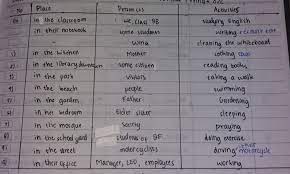 No Place Persons Activities
in the classroom we, class 9B studying English
in their notebook some students writing
Wina cleaning the whiteboard
1) in the kitchen Mother cooking
2) in the library downtown some citizen reading books
in the park visitors taking a walk
in the beach people swimming
in the garden Father Gardening
in her bedroom sister sleeping
in the mosque praying
in the school yard students of 9F doing exercise
in the street motorcyclist driving motorcycle
in their office Manager, employees working